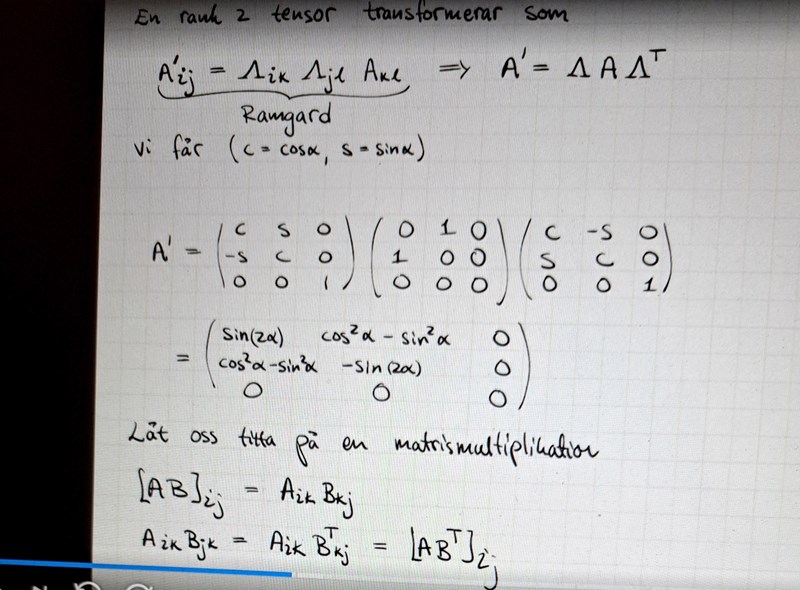 En rank 2 tensor transformerar som
A'ij = Λik Λjl Akl ⟹ A' = Λ A Λᵀ
Ramgard
vi får (c = cosα, s = sinα)
A' = ( c s 0 ; -s c 0 ; 0 0 1 ) ( 0 1 0 ; 1 0 0 ; 0 0 0 ) ( c -s 0 ; s c 0 ; 0 0 1 )
= ( sin(2α) cos²α - sin²α 0 ; cos²α-sin²α -sin(2α) 0 ; 0 0 0 )
Låt oss titta på en matrismultiplikation
[AB]ij = Aik Bkj
Aik Bjk = Aik Bᵀkj = [ABᵀ]ij